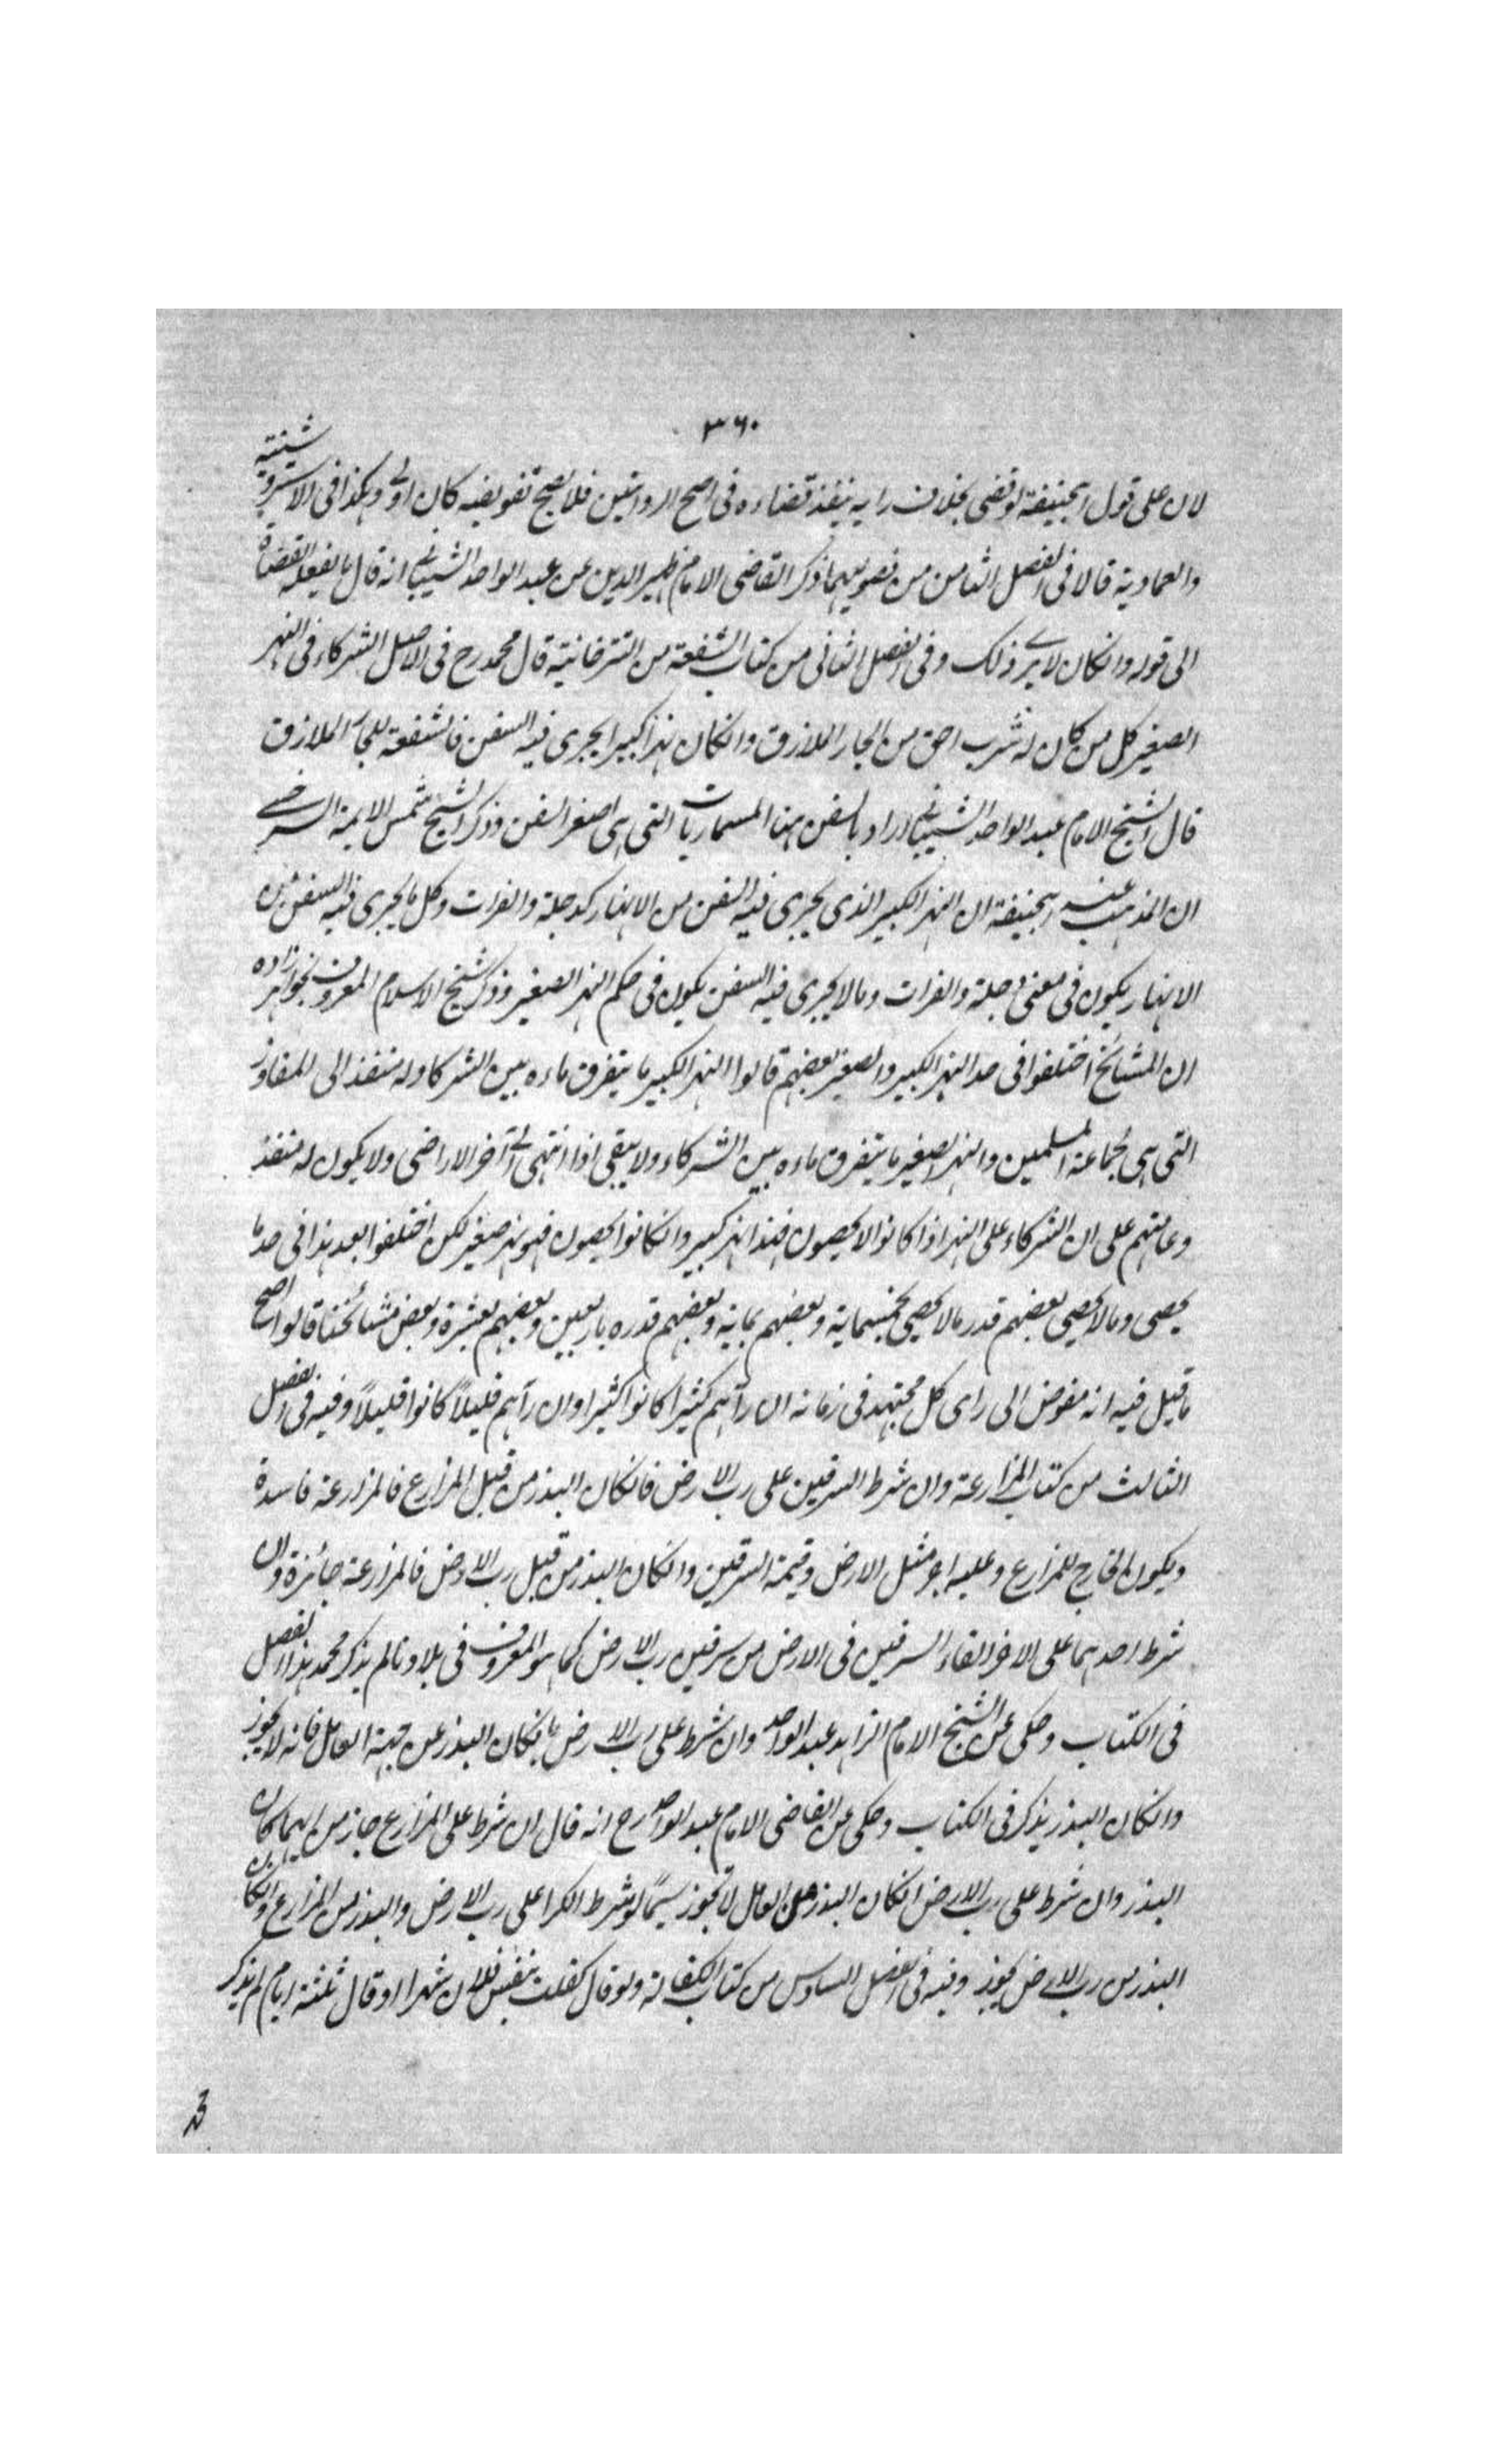 ٣٦٠
لان على قول ابيحنيفة لو قضى بخلاف رايه ينفذ قضاءه فى اصح الروايتين فلا يصح تفويضه كان اولى وهكذا فى الاستروشنية
والعمادية قالا فى الفصل الثامن من فصوليهما ذكر القاضى الامام ظهير الدين عن عبد الواحد الشيبانى انه قال ما يفعله القضاة
الى قوله وانكان لا يرى ذلك وفى الفصل الثانى من كتاب الشفعة من التترخانية قال محمد رح فى الاصل الشركاء فى النهر
الصغير كل من كان له شرب احق من الجار الملازق وانكان نهرا كبيرا يجرى فيه السفن فالشفعة للجار الملازق
قال الشيخ الامام عبد الواحد الشيبانى اراد بالسفن هنا المسماريات التى هى اصغر السفن وذكر الشيخ شمس الايمة السرخسى
ان المذهب عند ابيحنيفة ان النهر الكبير الذى يجرى فيه السفن من الانهار كدجلة والفرات وكل ما يجرى فيه السفن من
الانهار يكون فى معنى دجلة والفرات وما لا يجرى فيه السفن يكون فى حكم النهر الصغير وذكر شيخ الاسلام المعروف بخواهر زاده
ان المشائخ اختلفوا فى حد النهر الكبير والصغير بعضهم قالوا النهر الكبير ما يتفرق ماءه بين الشركا وله منفذ الى المفاوز
التى هى لجماعة المسلمين والنهر الصغير ما يتفرق ماءه بين الشركاء ولا يبقى اذا انتهى الى آخر الاراضى ولا يكون له منفذ
وعامتهم على ان الشركاء على النهر اذا كانوا لا يحصون فهذا نهر كبير وانكانوا يحصون فهو نهر صغير لكن اختلفوا بعد هذا فى حد ما
يحصى وما لا يحصى بعضهم قدر ما لا يحصى بخمسماية وبعضهم بماية وبعضهم قدره باربعين وبعضهم بعشرة وبعض مشائخنا قالوا اصح
ما قيل فيه انه مفوض الى راى كل مجتهد فى زمانه ان رآهم كثيرا كانوا كثيرا وان رآهم قليلاً كانوا قليلاً وفيه فى الفصل
الثالث من كتاب المزارعة وان شرط السرقين على رب الارض فانكان البذر من قبل المزارع فالمزارعة فاسدة
ويكون الخارج للمزارع وعليه اجر مثل الارض وقيمة السرقين وانكان البذر من قبل رب الارض فالمزارعة جائزة وان
شرط احدهما على الاخر القاء السرقين فى الارض من سرقين رب الارض كما هو المعروف فى بلادنا لم يذكر محمد هذا الفصل
فى الكتاب وحكى عن الشيخ الامام الزاهد عبد الواحد وان شرط على رب الارض بانكان البذر عن جهة العامل فانه لا يجوز
وانكان البذر يذكر فى الكتاب وحكى عن القاضى الامام عبد الواحد رح انه قال ان شرط على المزارع جاز من ايهما كان
البذر وان شرط على رب الارض انكان البذر من العامل لا يجوز سيما لو شرط الكرا على رب الارض والبذر من المزارع وانكان
البذر من رب الارض يجوز وفيه فى الفصل السادس من كتاب الكفالة ولو قال كفلت بنفس فلان شهرا او قال ثلثة ايام لم يذكر